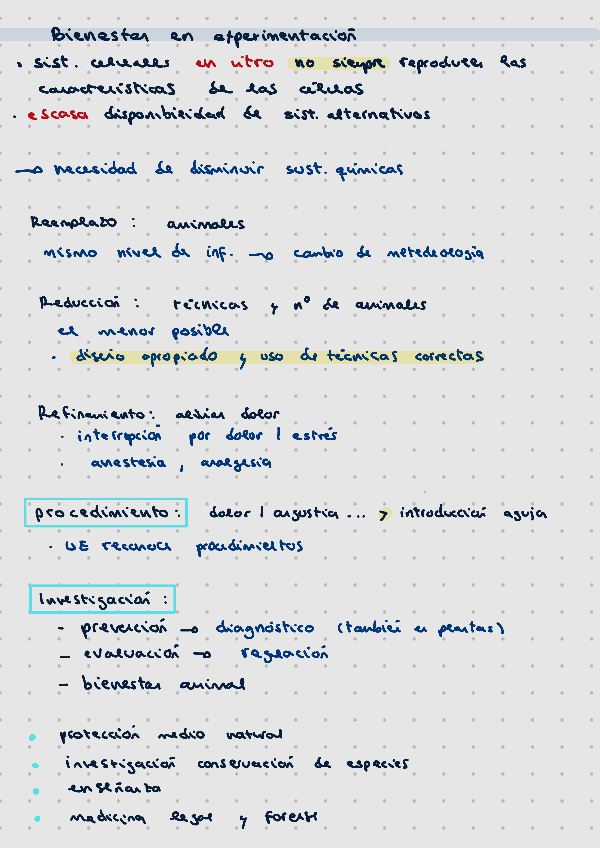 Bienestar en experimentación
· sist. celulares en vitro no siempre reproducen las
características de las células
· escasa disponibilidad de sist. alternativos
→ necesidad de disminuir sust. químicas
Reemplazo : animales
mismo nivel de inf. → cambio de metedología
Reducción : técnicas y nº de animales
el menor posible
· diseño apropiado y uso de técnicas correctas
Refinamiento : aliviar dolor
· interrepción por dolor / estrés
· anestesia , analgesia
procedimiento : dolor / angustia ... > introducción aguja
· UE reconoce procedimientos
Investigación :
- prevención → diagnóstico (también en plantas)
- evaluación → regulación
- bienestar animal
• protección medio natural
• investigación conservación de especies
• enseñanza
• medicina legal y forense